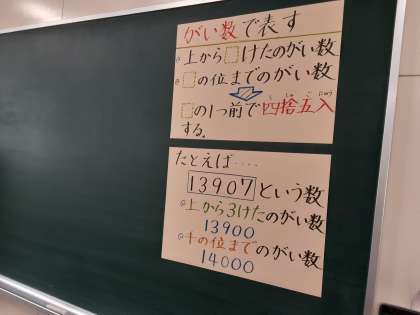 がい数で表す
◦上から□けたのがい数
◦□の位までのがい数
□の1つ前で四捨五入
する。
たとえば‥‥
13907という数
◦上から3けたのがい数
13900
◦千の位までのがい数
14000